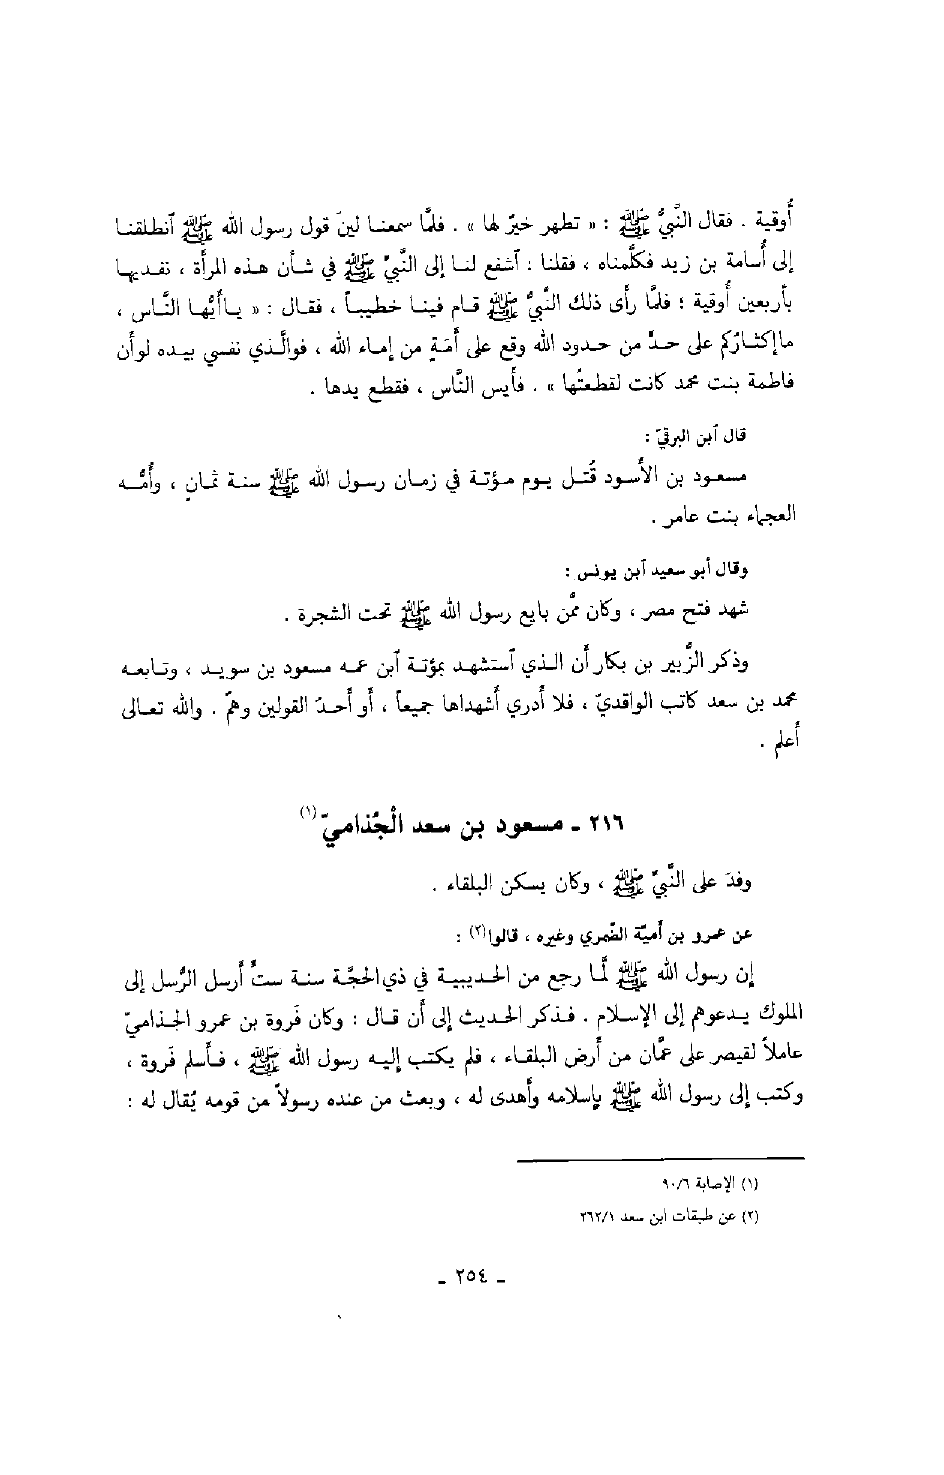 أُوقية . فقال النَّبيُّ ﷺ : « تطهر خيرٌ لها » . فلمَّا سمعنا لينَ قول رسول الله ﷺ ٱنطلقنا
إلى أُسامة بن زيد فكلَّمناه ، فقلنا : ٱشفع لنا إلى النَّبيِّ ﷺ في شأن هذه المرأة ، نفديها
بأربعين أُوقية ؛ فلمَّا رأى ذلك النَّبيُّ ﷺ قام فينا خطيباً ، فقال : « ياأيُّها النَّاس ،
ماإكثارُكم على حدٍّ من حدود الله وقع على أَمَةٍ من إماء الله ، فوالَّذي نفسي بيده لوأن
فاطمة بنت محمد كانت لقطعتُها » . فأيس النَّاس ، فقطع يدها .
قال ٱبن البرقيّ :
مسعود بن الأسود قُتل يوم مؤتة في زمان رسول الله ﷺ سنة ثمانٍ ، وأُمُّه
العجماء بنت عامر .
وقال أبو سعيد ٱبن يونس :
شهد فتح مصر ، وكان ممَّن بايع رسول الله ﷺ تحت الشجرة .
وذكر الزُّبير بن بكار أن الذي ٱستشهد بمؤتة ٱبن عمه مسعود بن سويد ، وتابعه
محمد بن سعد كاتب الواقديّ ، فلا أدري أشهداها جميعاً ، أو أحدُ القولين وهمٌ . والله تعالى
أعلم .
٢١٦ ـ مسعود بن سعد الْجُذاميّ(١)
وفدَ على النَّبيِّ ﷺ ، وكان يسكن البلقاء .
عن عمرو بن أميّة الضّمري وغيره ، قالوا(٢) :
إن رسول الله ﷺ لمَّا رجع من الحديبية في ذي‌الحجَّة سنة ستٍّ أرسل الرُّسل إلى
الملوك يدعوهم إلى الإسلام . فذكر الحديث إلى أن قال : وكان فَروة بن عمرو الجذاميّ
عاملاً لقيصر على عمَّان من أرض البلقاء ، فلم يكتب إليه رسول الله ﷺ ، فأسلم فَروة ،
وكتب إلى رسول الله ﷺ بإسلامه وأهدى له ، وبعث من عنده رسولاً من قومه يُقال له :
(١) الإصابة ٩٠/٦
(٢) عن طبقات ابن سعد ٢٦٢/١
ـ ٢٥٤ ـ